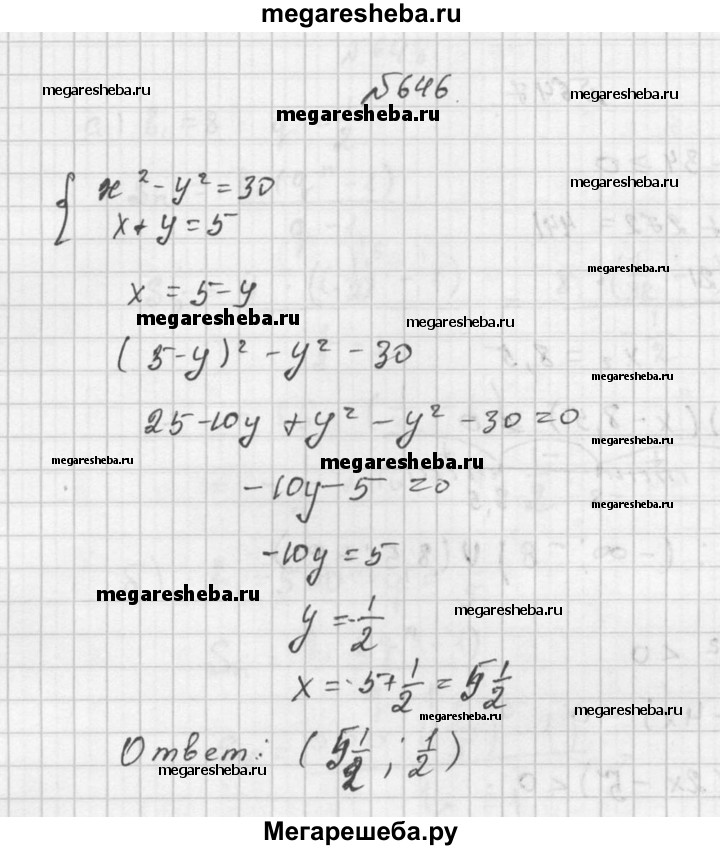 megaresheba.ru
№646.
megaresheba.ru
megaresheba.ru
megaresheba.ru
x² - y² = 30
megaresheba.ru
x + y = 5
megaresheba.ru
x = 5 - y
megaresheba.ru
megaresheba.ru
(5 - y)² - y² - 30
megaresheba.ru
25 - 10y + y² - y² - 30 = 0
megaresheba.ru
megaresheba.ru
megaresheba.ru
-10y - 5 = 0
megaresheba.ru
-10y = 5
megaresheba.ru
megaresheba.ru
y = -1/2
x = 5 + 1/2 = 5 1/2
megaresheba.ru
megaresheba.ru
Ответ: (5 1/2 ; 1/2)
megaresheba.ru
megaresheba.ru
Мегарешеба.ру